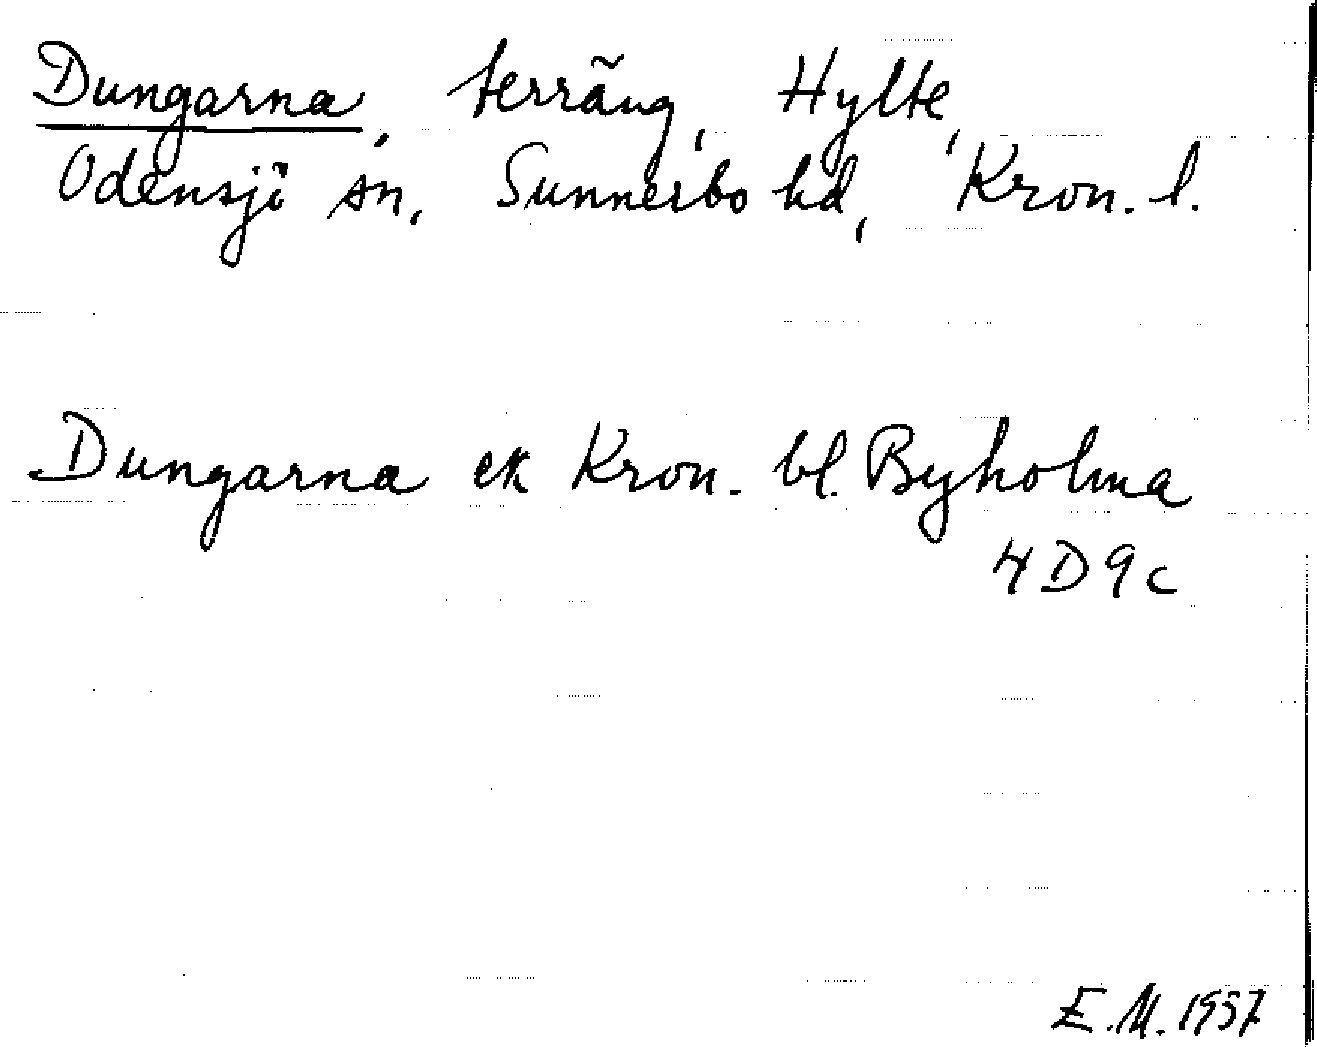 Dungarna, terräng, Hylte,
Odensjö sn, Sunnerbo hd, Kron. l.
Dungarna ek Kron. bl. Byholma
4D9c
E.M. 1957